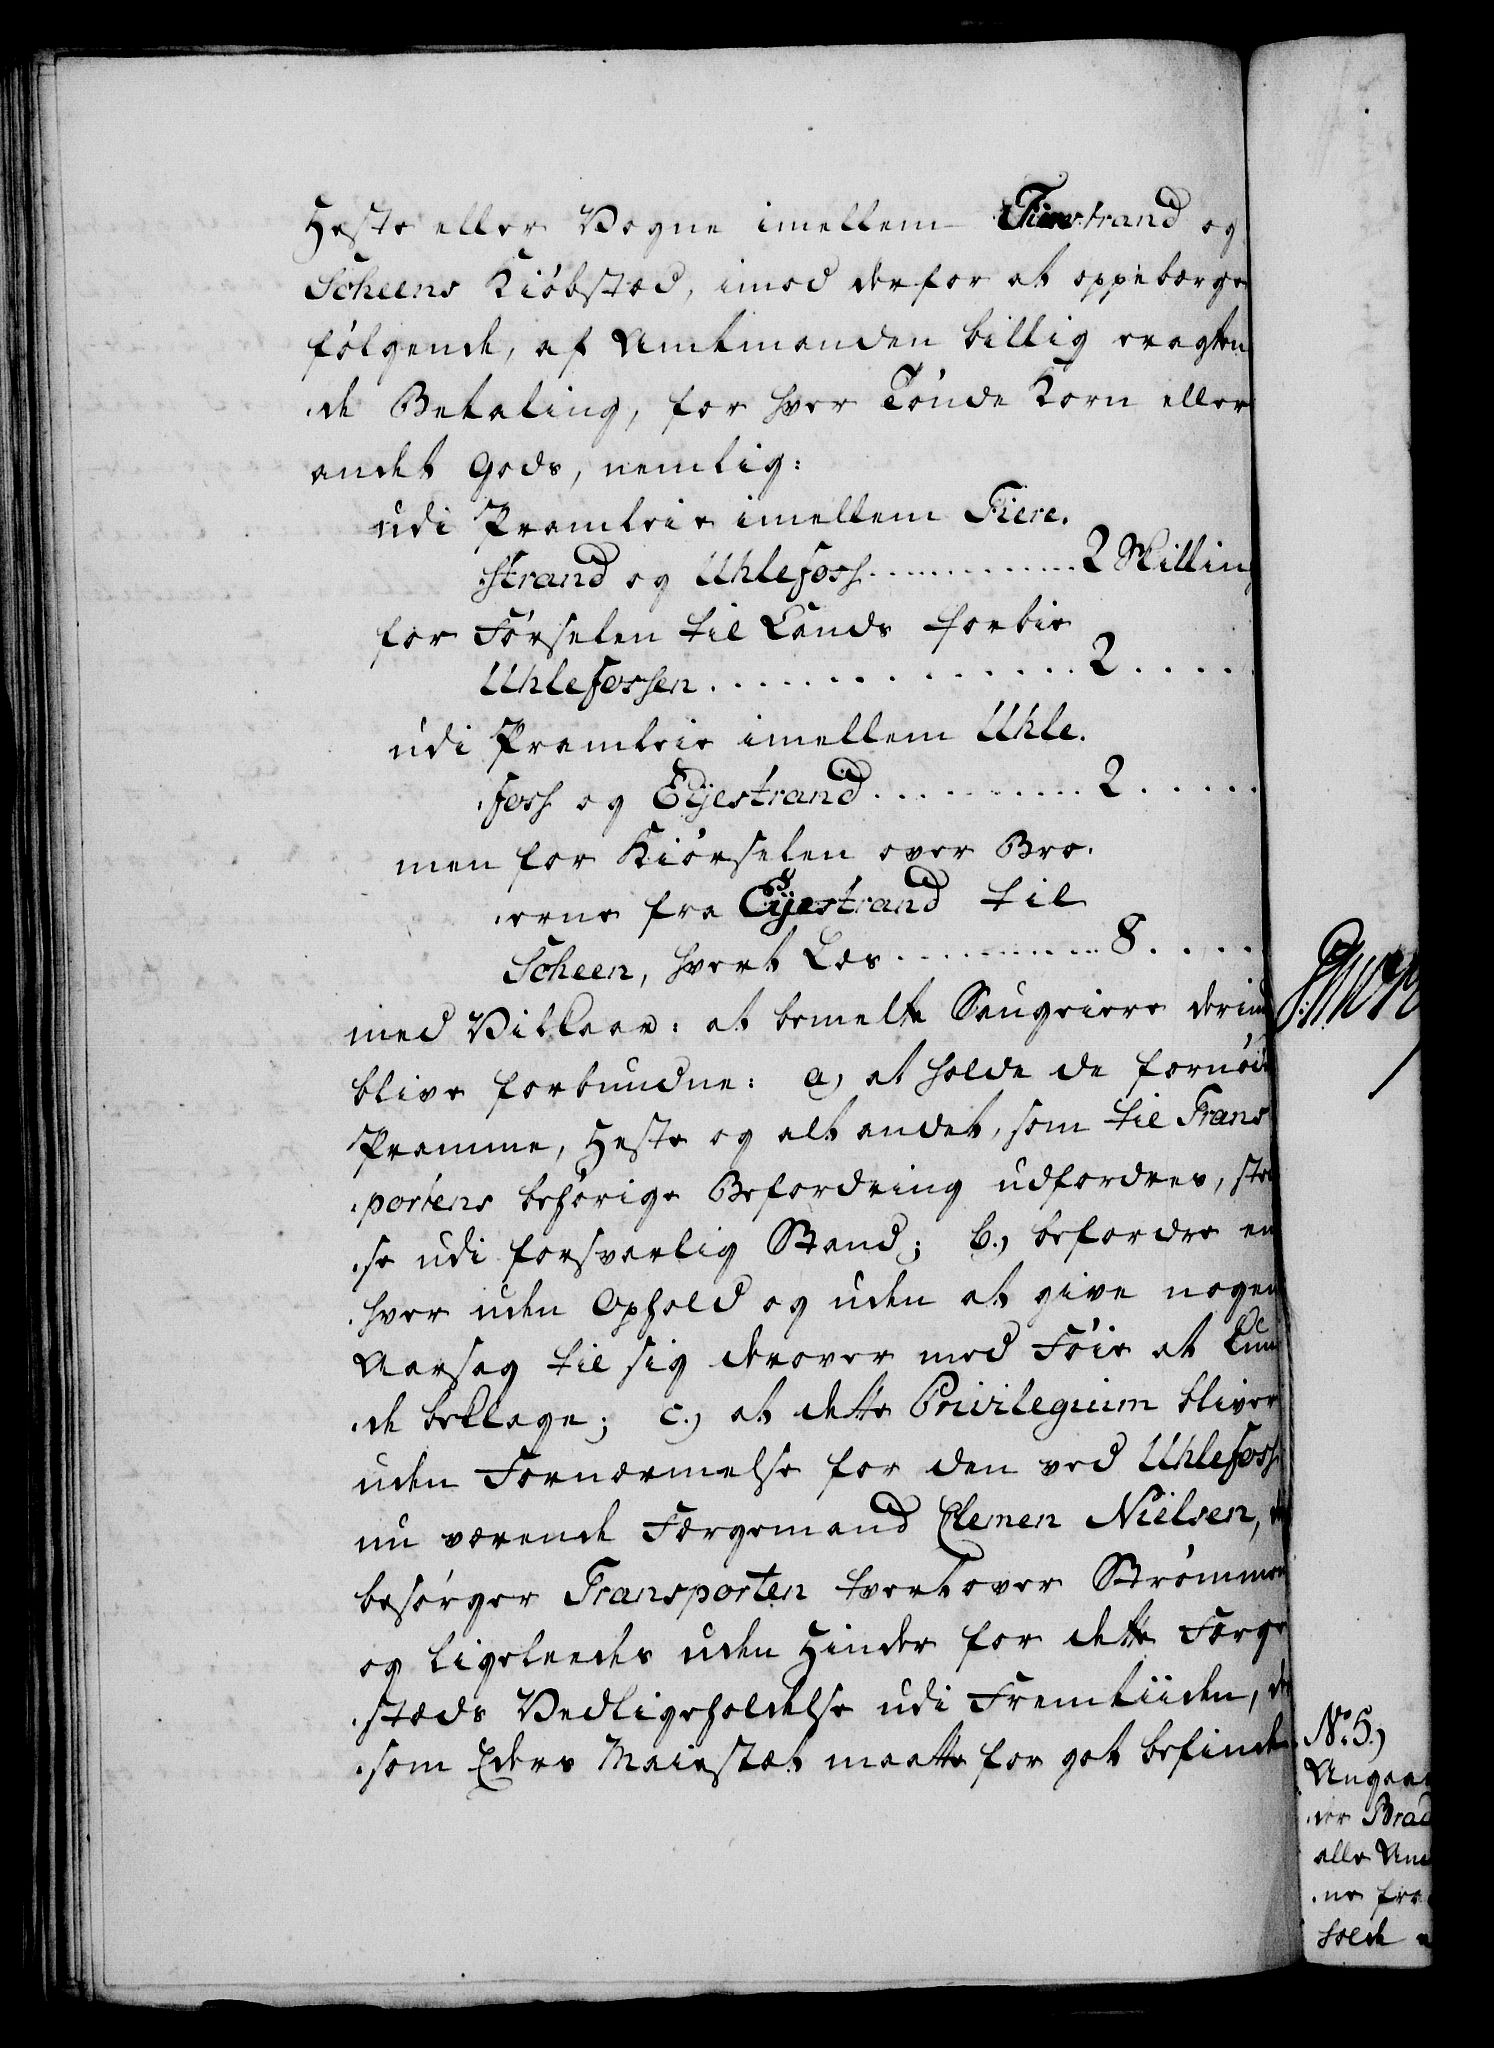 Heste eller Vogne imellem Fierestrand og
Scheens Kiøbstæd, imod derfor at oppebærge
følgende, af Amtmanden billig eragten
.de Betaling, for hver Tønde Korn eller
andet Gods, nemlig:
udi Pramleie imellem Fiere.
.strand og Uhlefoss............. 2 Skilling
for Førselen til Lands forbie
Uhlefossen............... 2.....
udi Pramleie imellem Uhle.
.foss og Eijestrand........... 2......
men for Kiørselen over Bro.
.erne fra Eijestrand til
Scheen, hvert Læs............ 8.....
med Vilkaar: at bemelte Saugeiere derimod
blive forbundne: a, at holde de fornødne
Pramme, Heste og alt andet, som til Trans
.portens behørige Befordring udfordres, sted
.se udi forsvarlig Stand; b., befordre en
.hver uden Ophold og uden at give nogen
Aarsag til sig derover med Føie at kun
.de beklage; c., at dette Privilegium bliver
uden Fornærmelse for den ved Uhlefoss
nu værende Færgemand Clemen Nielsen,
besørger Transporten tvertover Strømmen
og ligeleedes uden Hinder for dette Færge
.stæds Vedligeholdelse udi Fremtiiden, der
.som Eders Maiestæt maatte for got befinde
No. 5.,
Angaa
.der Brad
alle
.ne fra
holde